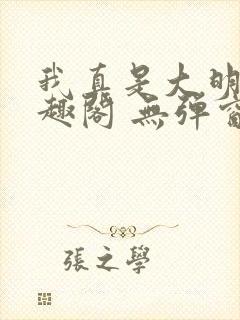 我真是大明
趣閣 無彈窗
張之學